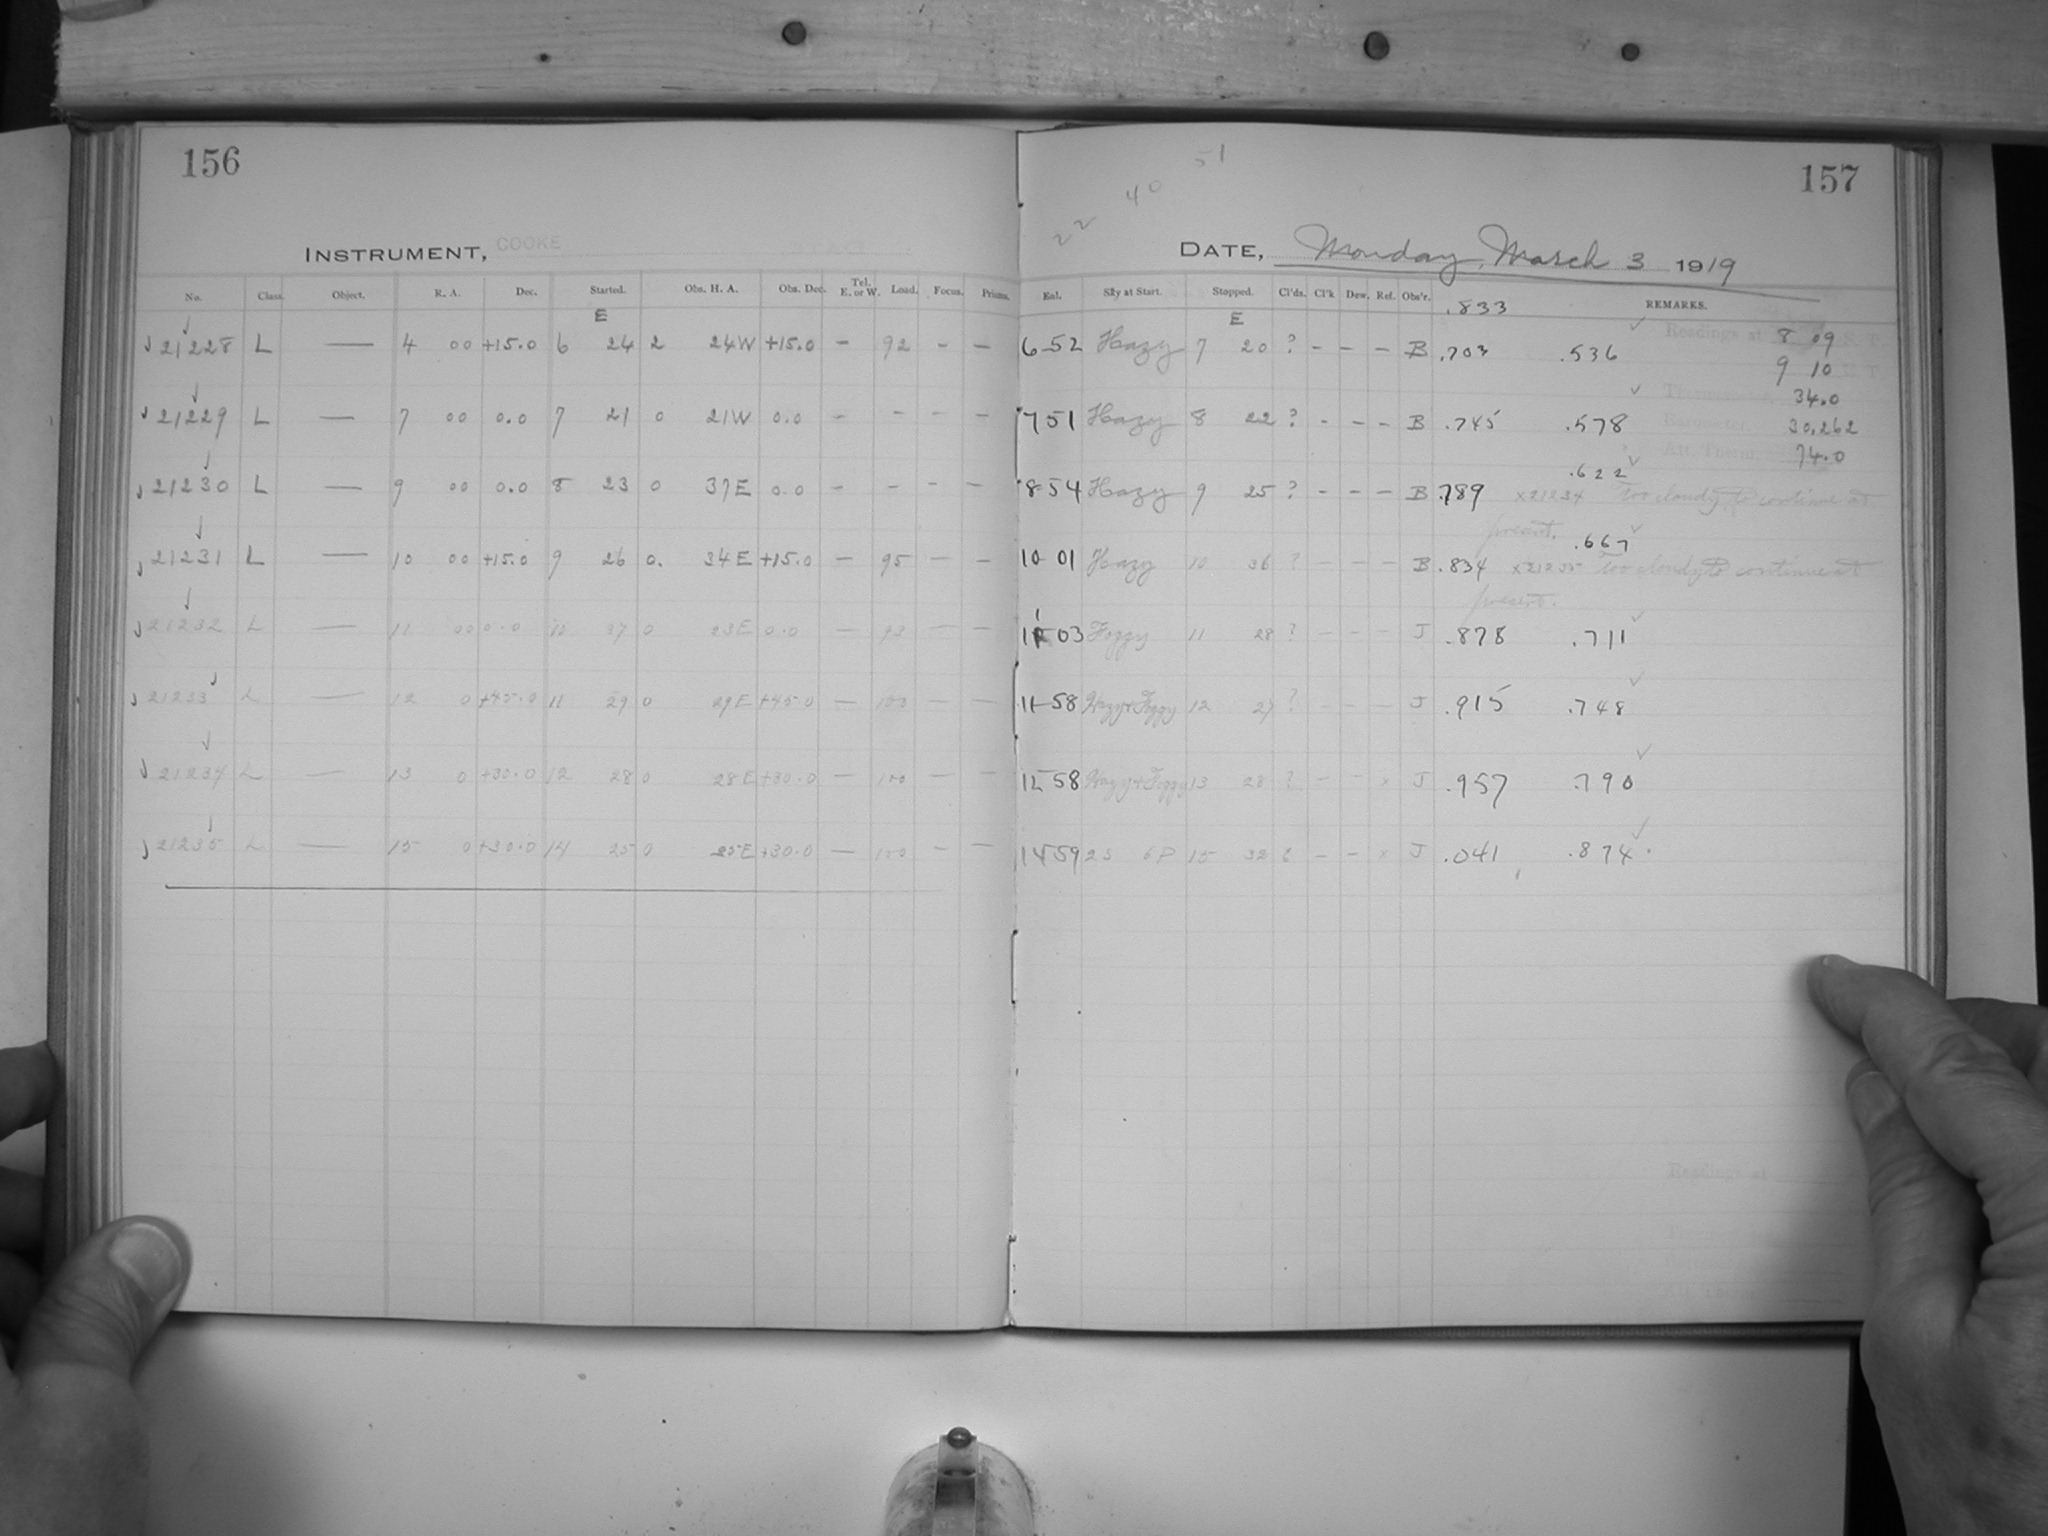 156
INSTRUMENT, COOKE
No. Class. Object. R. A. Dec. Started. Obs. H. A. Obs. Dec. Tel. E. or W. Load. Focus. Prisms.
E
21228 L — 4 00 +15.0 6 24 2 24W +15.0 - 92 - -
21229 L — 7 00 0.0 7 21 0 21W 0.0 - - - -
21230 L — 9 00 0.0 8 23 0 37E 0.0 - - - -
21231 L — 10 00 +15.0 9 26 0. 34E +15.0 - 95 - -
21232 L — 11 00 0.0 10 37 0 23E 0.0 - 93 - -
21233 L — 12 0 +45.0 11 29 0 29E +45.0 - 100 - -
21234 L — 13 0 +30.0 12 28 0 28E +30.0 - 100 - -
21235 L — 15 0 +30.0 14 25 0 25E +30.0 - 100 - -
51
40
22
157
DATE, Monday, March 3 1919
Exl. Sky at Start. Stopped. Cl'ds. Cl'k Dew. Ref. Obs'r. REMARKS.
E .833
6 52 Hazy 7 20 ? - - - B .703 .536
Readings at 8 09 S. T.
9 10 S. T.
Thermometer, 34.0
7 51 Hazy 8 22 ? - - - B .745 .578
Barometer, 30.262
Att. Therm. 74.0
.622
8 54 Hazy 9 25 ? - - - B .789 x21234 too cloudy to continue at
present.
.667
10 01 Hazy 10 36 ? - - - B .834 x21235 too cloudy to continue at
present.
11 03 Foggy 11 28 ? - - - J .878 .711
11 58 Hazy & Foggy 12 27 ? - - - J .915 .748
12 58 Hazy & Foggy 13 28 ? - - x J .957 .790
14 59 2S 6P 15 32 - - x J .041 .874
Readings at